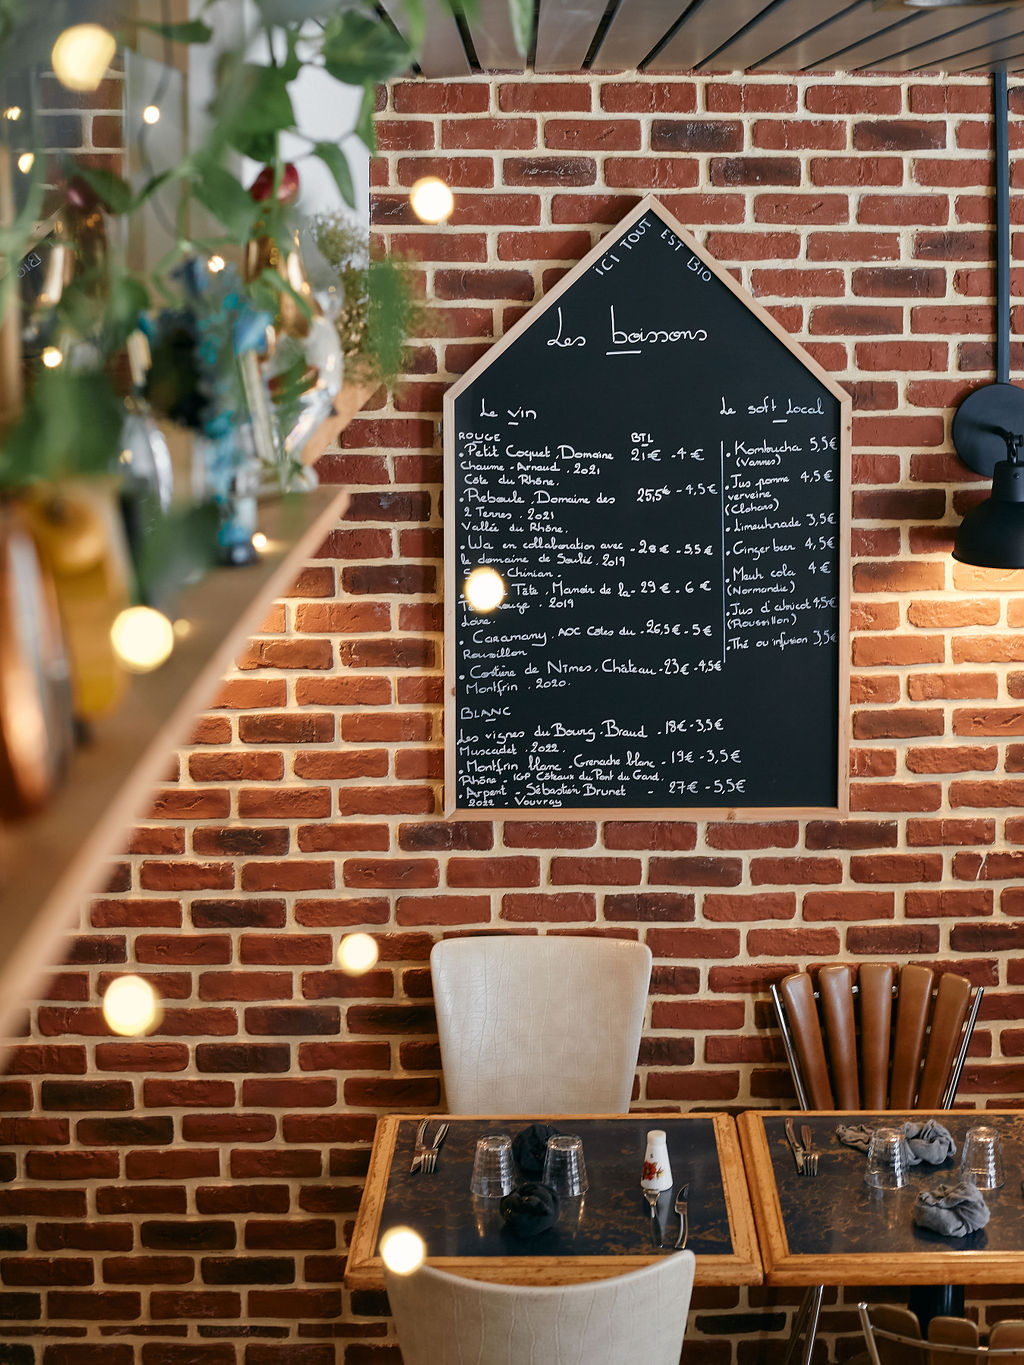 ICI TOUT EST BIO
Les boissons
Le vin
ROUGE BTL
• Petit Coquet, Domaine 21€ - 4€
Chaume - Arnaud. 2021
Côte du Rhône.
• Reboule, Domaine des 25,5€ - 4,5€
2 Terres. 2021
Vallée du Rhône.
• Wa en collaboration avec - 28€ - 5,5€
le domaine de Soulié. 2019
Chinian.
Tête, Manoir de la - 29€ - 6€
Rouge. 2019
Loire.
• Caramany, AOC Côtes du - 26,5€ - 5€
Roussillon
• Costière de Nîmes, Château - 23€ - 4,5€
Montfrin. 2020.
BLANC
Les vignes du Bourg. Braud. 18€ - 3,5€
Muscadet. 2022.
• Montfrin blanc. Grenache blanc - 19€ - 3,5€
Rhône - IGP Côteaux du Pont du Gard.
• Arpent - Sébastien Brunet - 27€ - 5,5€
2022 - Vouvray
Le soft Local
• Kombucha 5,5€
(Vannes)
• Jus pomme 4,5€
verveine
(Clohars)
• Limeuhnade 3,5€
• Ginger beer 4,5€
• Meuh cola 4€
(Normandie)
• Jus d'abricot 4,5€
(Roussillon)
• Thé ou infusion 3,5€
BIO